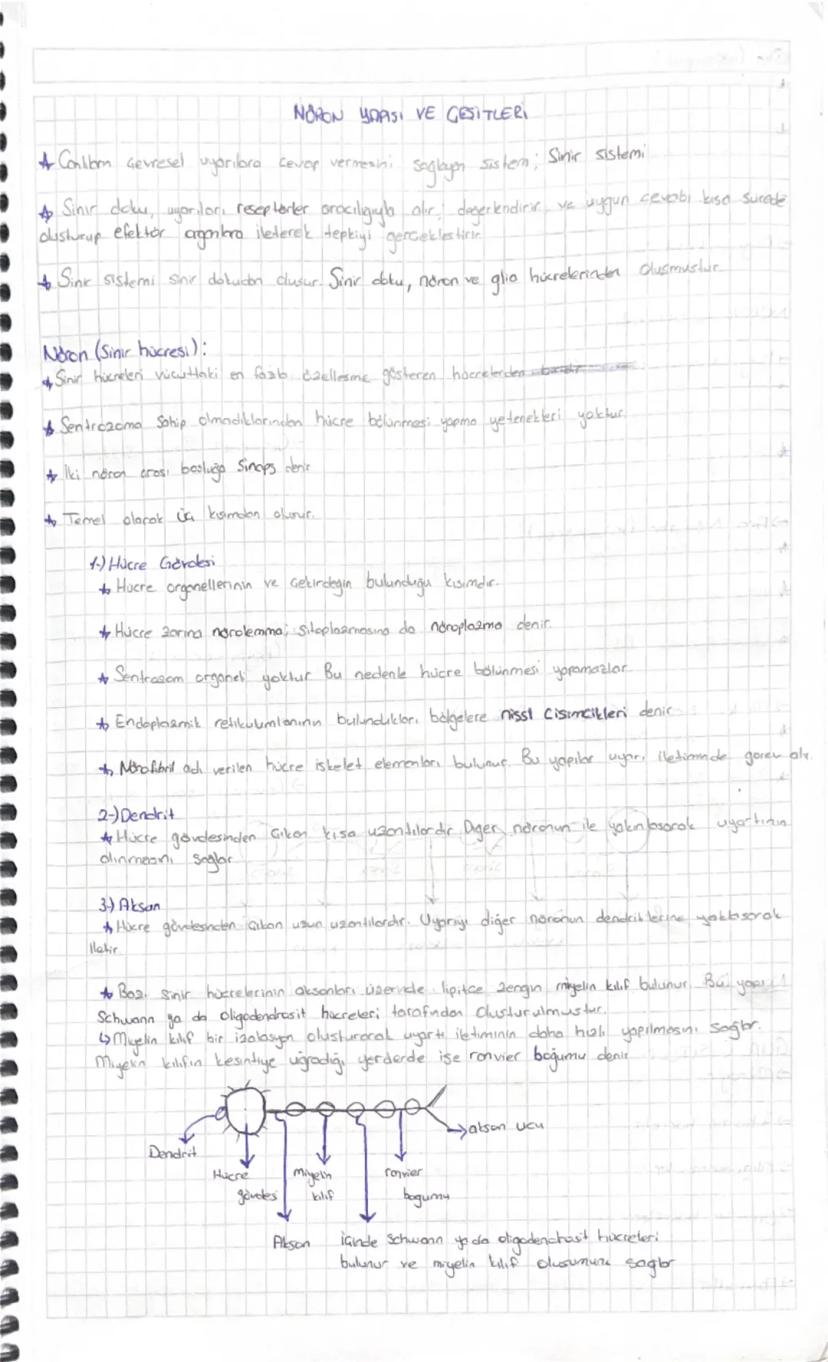 NÖRON YAPISI VE ÇEŞİTLERİ
Canlının çevresel uyarılara cevap vermesini sağlayan sistem; Sinir sistemi
Sinir doku, uyarıları reseptörler aracılığıyla alır; değerlendirir ve uygun cevabı kısa sürede
oluşturup efektör organlara ileterek tepkiyi gerçekleştirir
Sinir sistemi sinir dokudan oluşur. Sinir doku, nöron ve glia hücrelerinden oluşmuştur.
Nöron (Sinir hücresi):
Sinir hücreleri vücuttaki en fazla özelleşme gösteren hücrelerden
Sentrozoma sahip olmadıklarından hücre bölünmesi yapma yetenekleri yoktur.
İki nöron arası boşluğa Sinaps denir
Temel olarak üç kısımdan oluşur.
1-) Hücre Gövdesi
Hücre organellerinin ve çekirdeğin bulunduğu kısımdır.
Hücre zarına nörolemma; sitoplazmasına da nöroplazma denir.
Sentrozom organeli yoktur Bu nedenle hücre bölünmesi yapamazlar
Endoplazmik retikulumlarının bulundukları bölgelere nissl cisimcikleri denir
Nörofibril adı verilen hücre iskelet elemanları bulunur. Bu yapılar uyarı iletiminde görev alır.
2-) Dendrit
Hücre gövdesinden çıkan kısa uzantılardır Diğer nöronun ile yakınlaşarak uyartının
alınmasını sağlar
3-) Akson
Hücre gövdesinden çıkan uzun uzantılardır. Uyarıyı diğer nöronun dendritlerine yaklaşarak
iletir
Bazı sinir hücrelerinin aksonları üzerinde lipitçe zengin miyelin kılıf bulunur. Bu yapı
Schwann ya da oligodendrosit hücreleri tarafından oluşturulmuştur.
↳ Miyelin kılıf bir izolasyon oluşturarak uyartı iletiminin daha hızlı yapılmasını sağlar.
Miyelin kılıfın kesintiye uğradığı yerlerde ise ranvier boğumu denir
akson ucu
Dendrit
Hücre gövdesi
miyelin kılıf
ranvier boğumu
Akson
içinde Schwann ya da oligodendrosit hücreleri
bulunur ve miyelin kılıf oluşumunu sağlar